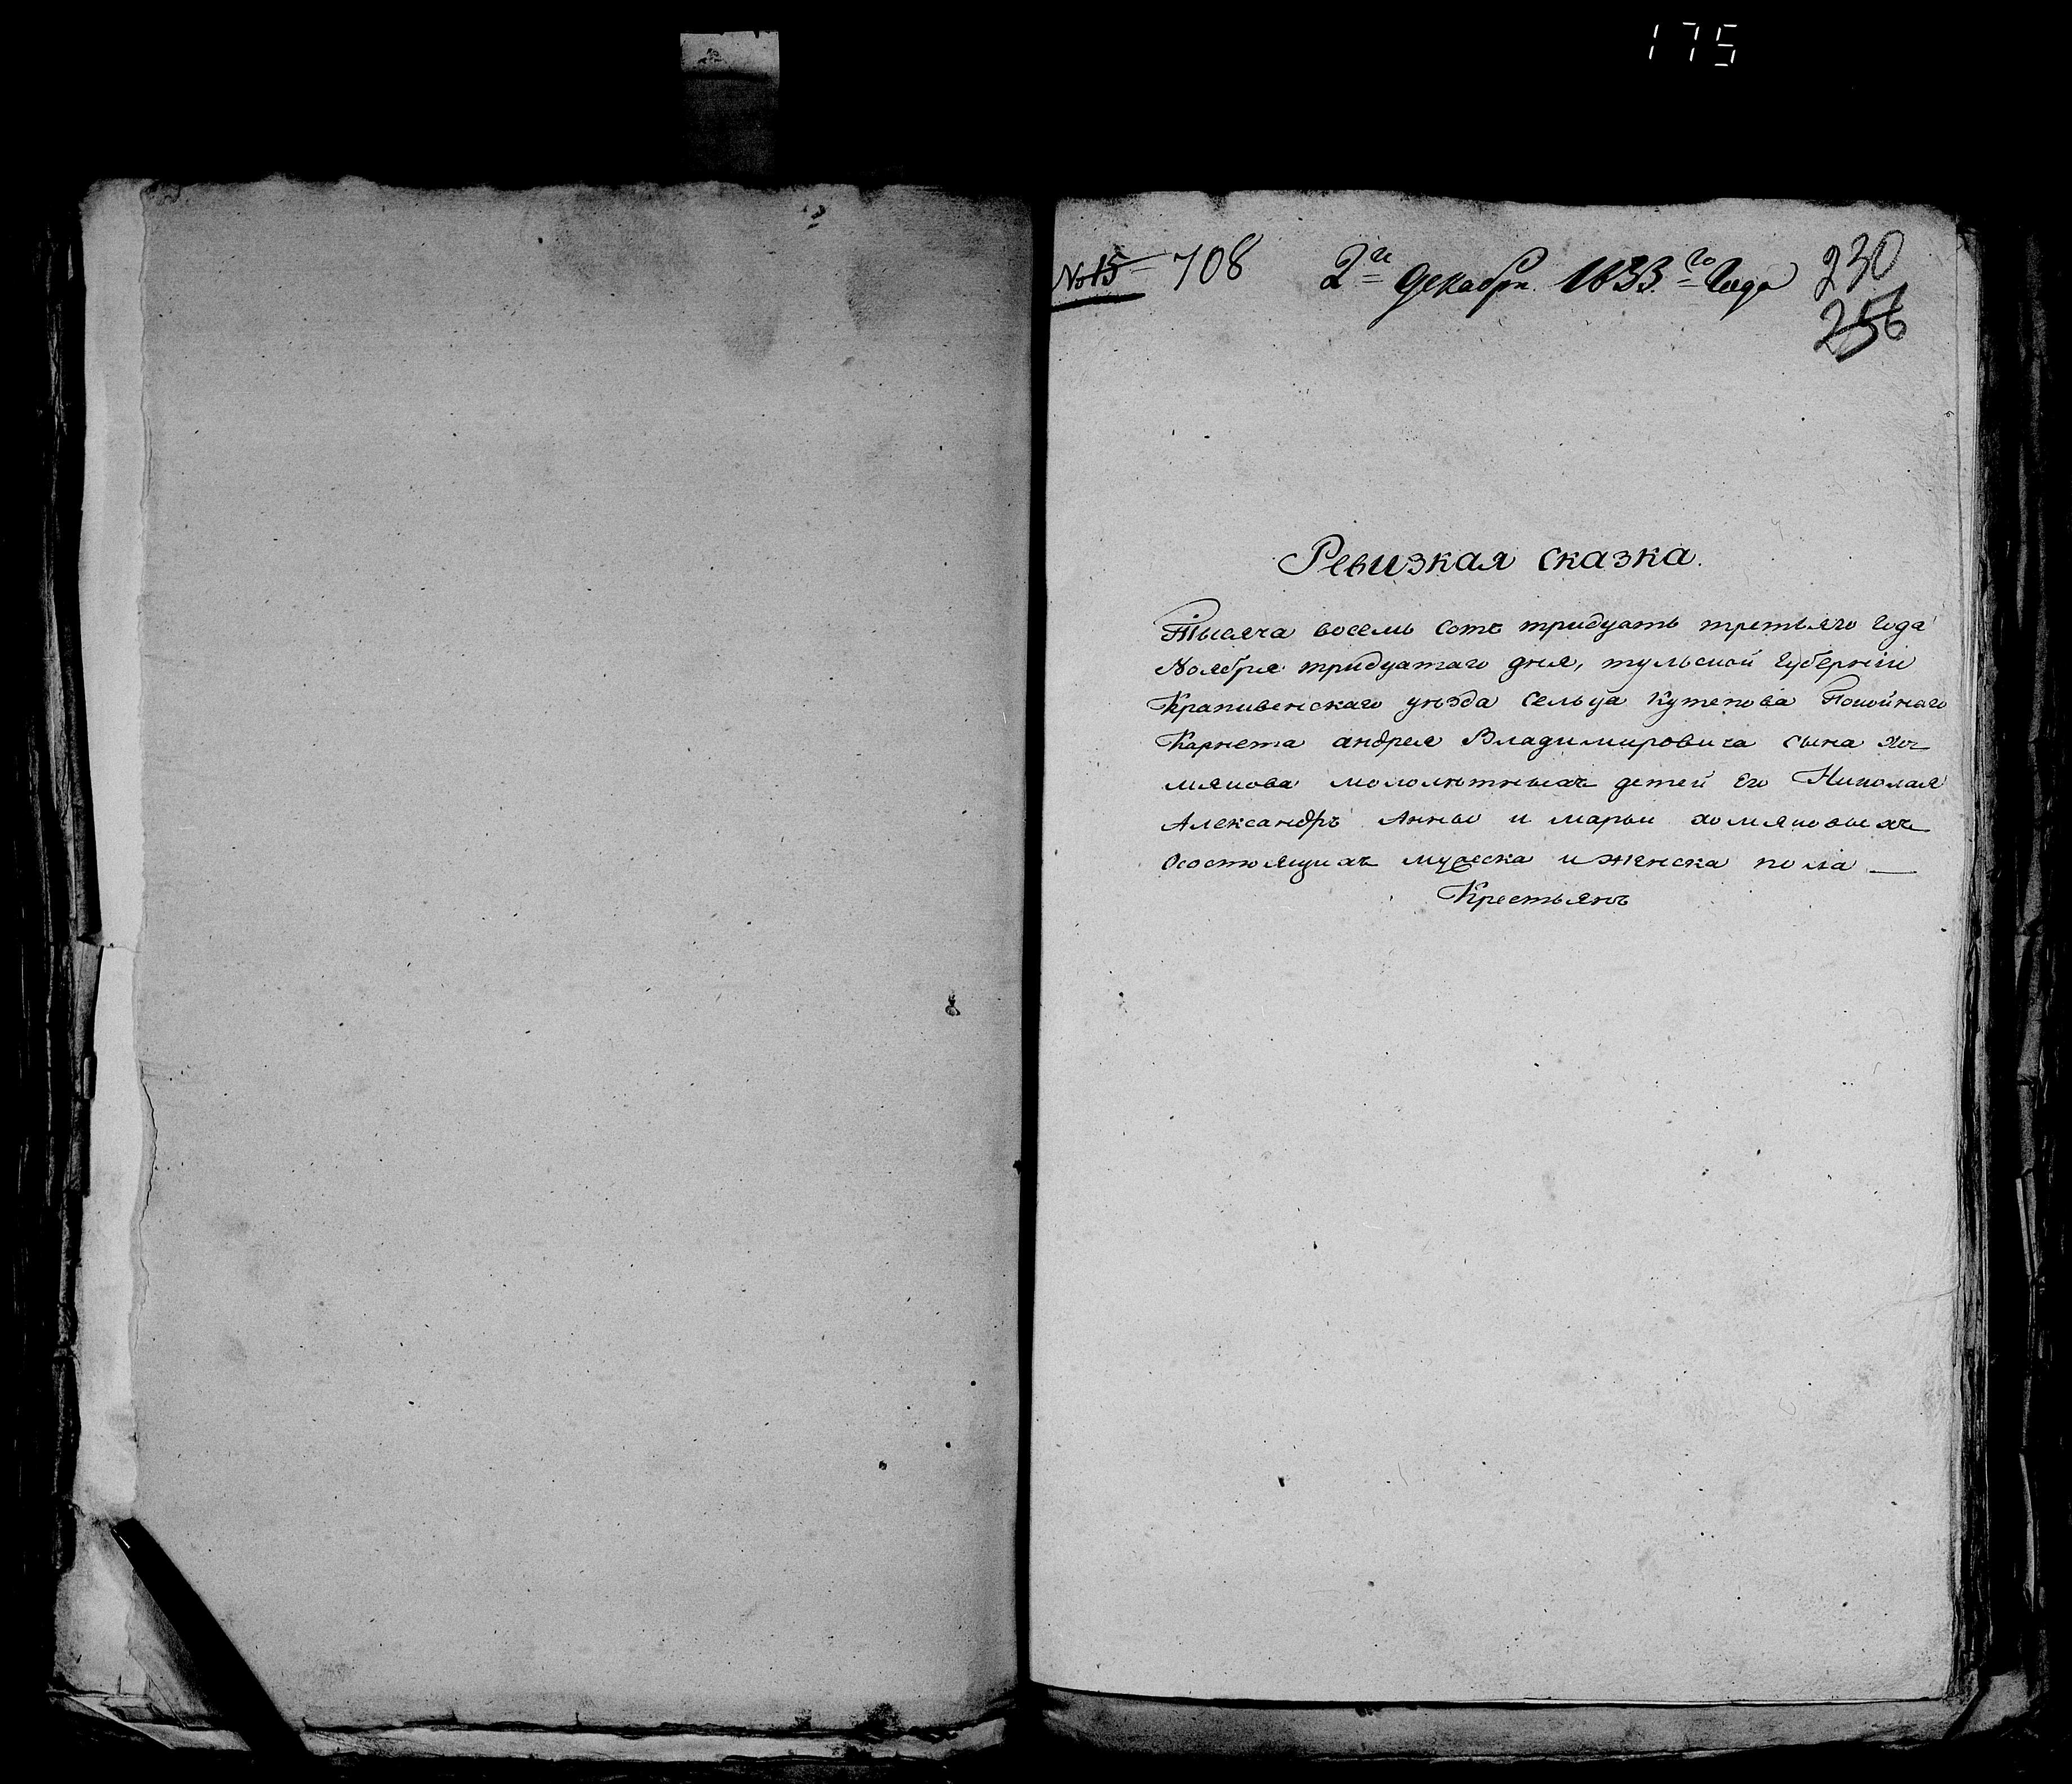 175
№ 15 – 708 2го декабря 1833го Года 230
256
Ревизкая сказка.
Тысяча восемь сотъ тридцать третьяго Года
Ноября тридцатаго дня, тульской Губерніи
Крапивенскаго уѣзда сельца Кутепова Покойнаго
Карнета андрея Владимировича сына Хо
мякова мололѣтныхъ детей Его Николая
Александръ Анны и марьи хомяковыхъ
Осостоящихъ мужеска и женска пола —
Крестьянъ